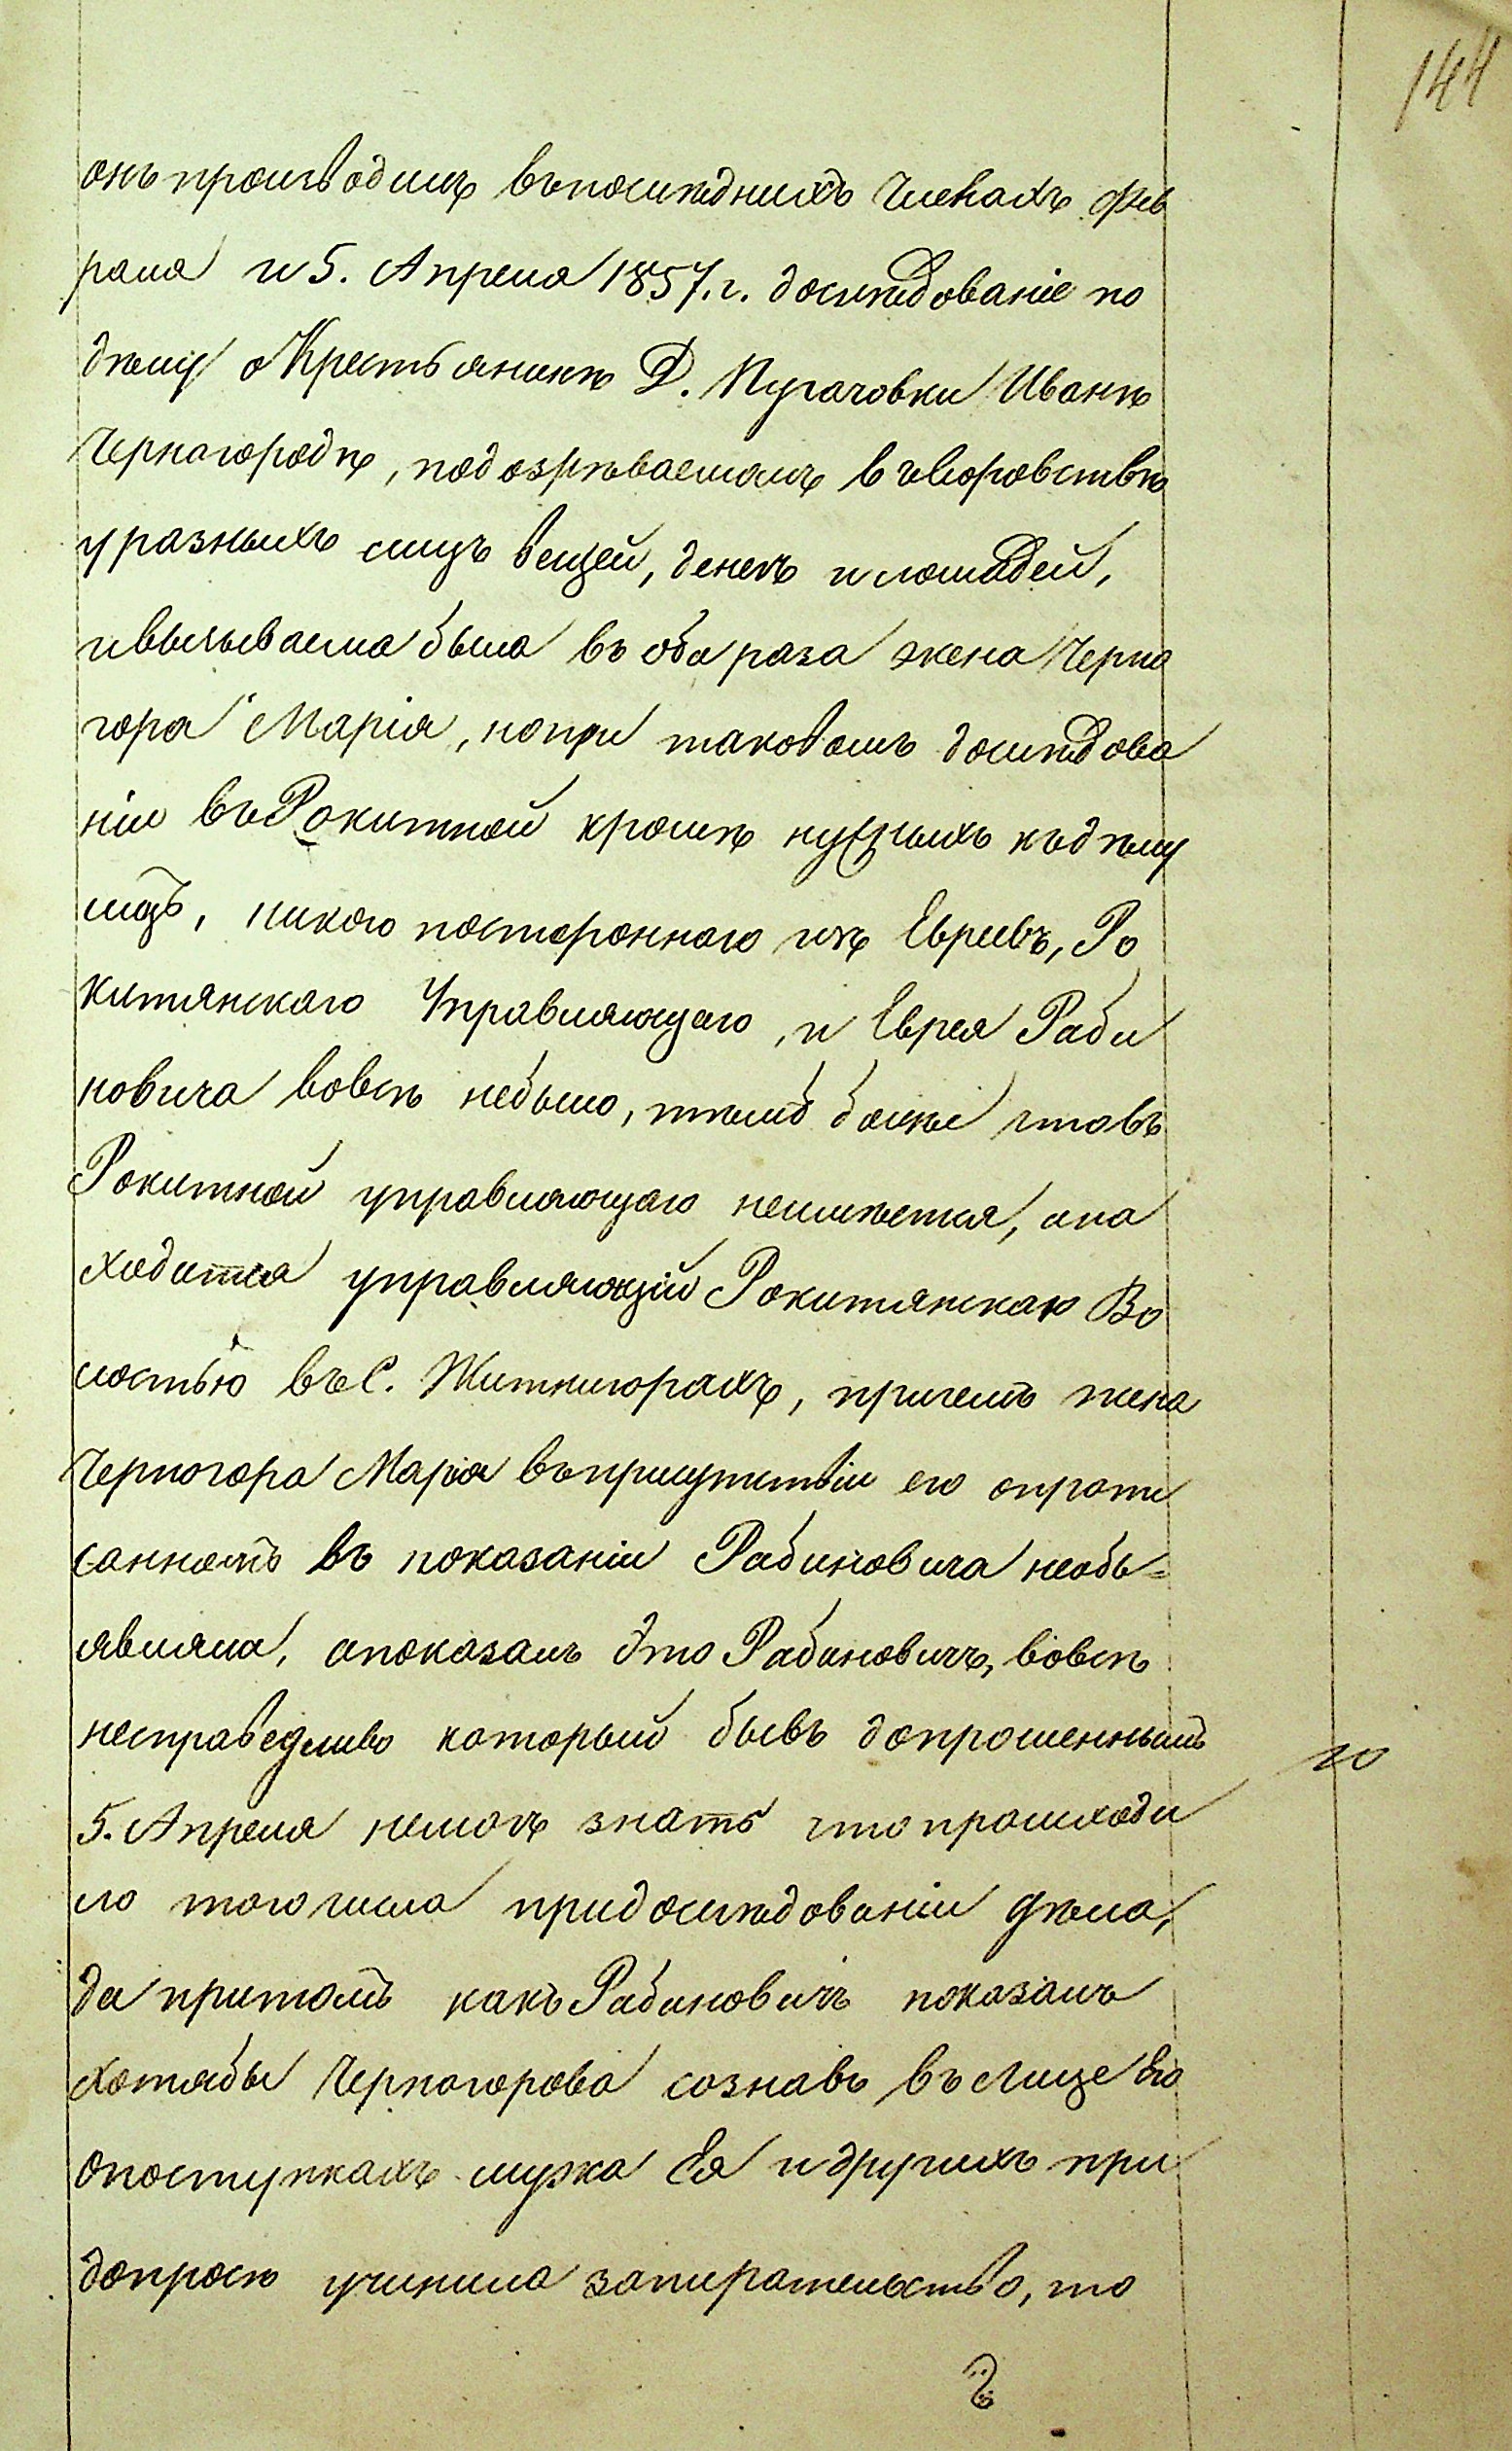 144
онъ производилъ въ последнихъ числахъ Фев
раля и 5. Апреля 1857. г. дослѣдованіе по
дѣлу о Крестьянинѣ Д. Пугачовки Иванѣ
Черногородѣ, подозрѣваемомъ въ воровствѣ
у разныхъ лицъ вещей, денегъ и лошадей,
и вызываема была въ оба раза жена Черно
гора Марія, но при таковомъ дослѣдова
ніи въ Рокитной кромѣ нужныхъ къ дѣлу
лицъ, никого посторонняго изъ Евреевъ, Ро
китянскаго Управляющаго, и Еврея Раби
новича вовсѣ небыло, тѣмъ болѣе что въ
Рокитной управляющаго неимѣется, а на
ходится управляющій Рокитянскою Во
лостью въ С. Житнигорахъ, причемъ жена
Черногора Марія въ присутствіи его опропи
санномъ въ показаніи Рабиновича необъ=
являла, а показалъ это Рабиновичъ, вовсѣ
несправедливо который бывъ допрошеннымъ
5. Апреля немогъ знать что происходи
ло того числа при дослѣдованіи дѣла,
да притомъ какъ Рабиновичъ показалъ
хотябы Черногорова сознавъ въ лице Его
о поступкахъ мужа Ея и другихъ при
допросѣ учинила запирательство, то